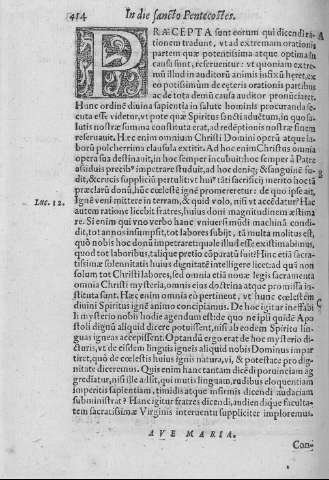 414 In die sancto Pentecostes.
PRÆCEPTA sunt eorum qui dicendi ra- A
tionem tradunt, vt ad extremam orationis
partem quæ potentissima atque optima in
causa sunt, reseruentur: vt quoniam extre-
mũ illud in auditorũ animis infixũ hæret, ex
eo potissimùm de cæteris orationis partibus
ac de tota demũ causa auditor pronũciaret.
Hunc ordinẽ diuina sapientia in salute hominis procuranda se-
cuta esse videtur, vt pote quæ Spiritus sancti aduẽtum, in quo sa-
lutis nostræ summa constituta erat, ad redẽptionis nostræ finem
reseruauit. Hæc enim omnium Christi Domini operũ atque la-
borũ pulcherrima clausula extitit. Ad hoc enim Christus omnia
opera sua destinauit, in hoc semper incubuit: hoc semper à Patre
assiduis precib⁹ impetrare studuit, ad hoc deniq; & sanguinẽ fu- B
dit, & crucis suppliciũ pertulit: vt hui⁹ tãti sacrificij merito hoc tã
præclarũ donũ, hũc cœlestẽ ignẽ promereretur: de quo ipse ait,
Luc. 12. Ignẽ veni mittere in terram, & quid volo, nisi vt accẽdatur? Hac
autem ratione licebit fratres, huius doni magnitudinem æstima
re. Si enim qui vno verbo hanc vniuersã mũdi machinã condi-
dit, tot annos insumpsit, tot labores subijt, tũ multa molitus est,
quò nobis hoc donũ impetraret: quale illud esse existimabimus,
quod tot laboribus, talique pretio cõparatũ fuit? Hinc etiã sacra-
tissimæ solennitatis huius dignitatẽ intelligere licet: ad quã non
solum tot Christi labores, sed omnia etiã noua legis sacramenta
omnia Christi mysteria, omnis eius doctrina atque promissa in-
stituta sunt. Hæc enim omnia eò pertinent, vt hunc cœlestem C
diuini Spiritus ignẽ animo concipiamus. De hoc igitur ineffabi
li mysterio nobis hodie agendum est: de quo ne ipsi quidẽ Apo
stoli dignũ aliquid dicere potuissent, nisi ab eodem Spiritu lin-
guas igneas accepissent. Optandũ ergo erat de hoc mysterio di-
cturis, vt de eisdem linguis igneis aliquid nobis Dominus impar
tiret, quò de cœlestis huius ignis natura, vi, & potestate pro dig-
nitate diceremus. Quis enim hanc tantam dicẽdi prouinciam ag
grediatur, nisi ille adsit, qui mutis linguam, rudibus eloquentiam
imperitis sapientiam, timidis atque infirmis dicendi audaciam
subministrat? Hanc igitur fratres dicendi, audiendique faculta-
tem sacratissimæ Virginis interuentu suppliciter imploremus.
AVE MARIA.
Con-